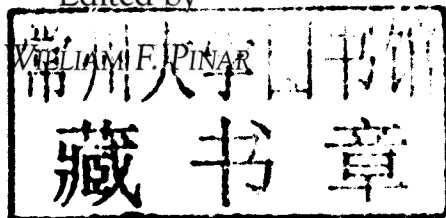 Edited by
WILLIAM F. PINAR
常州大学图书馆
藏书章